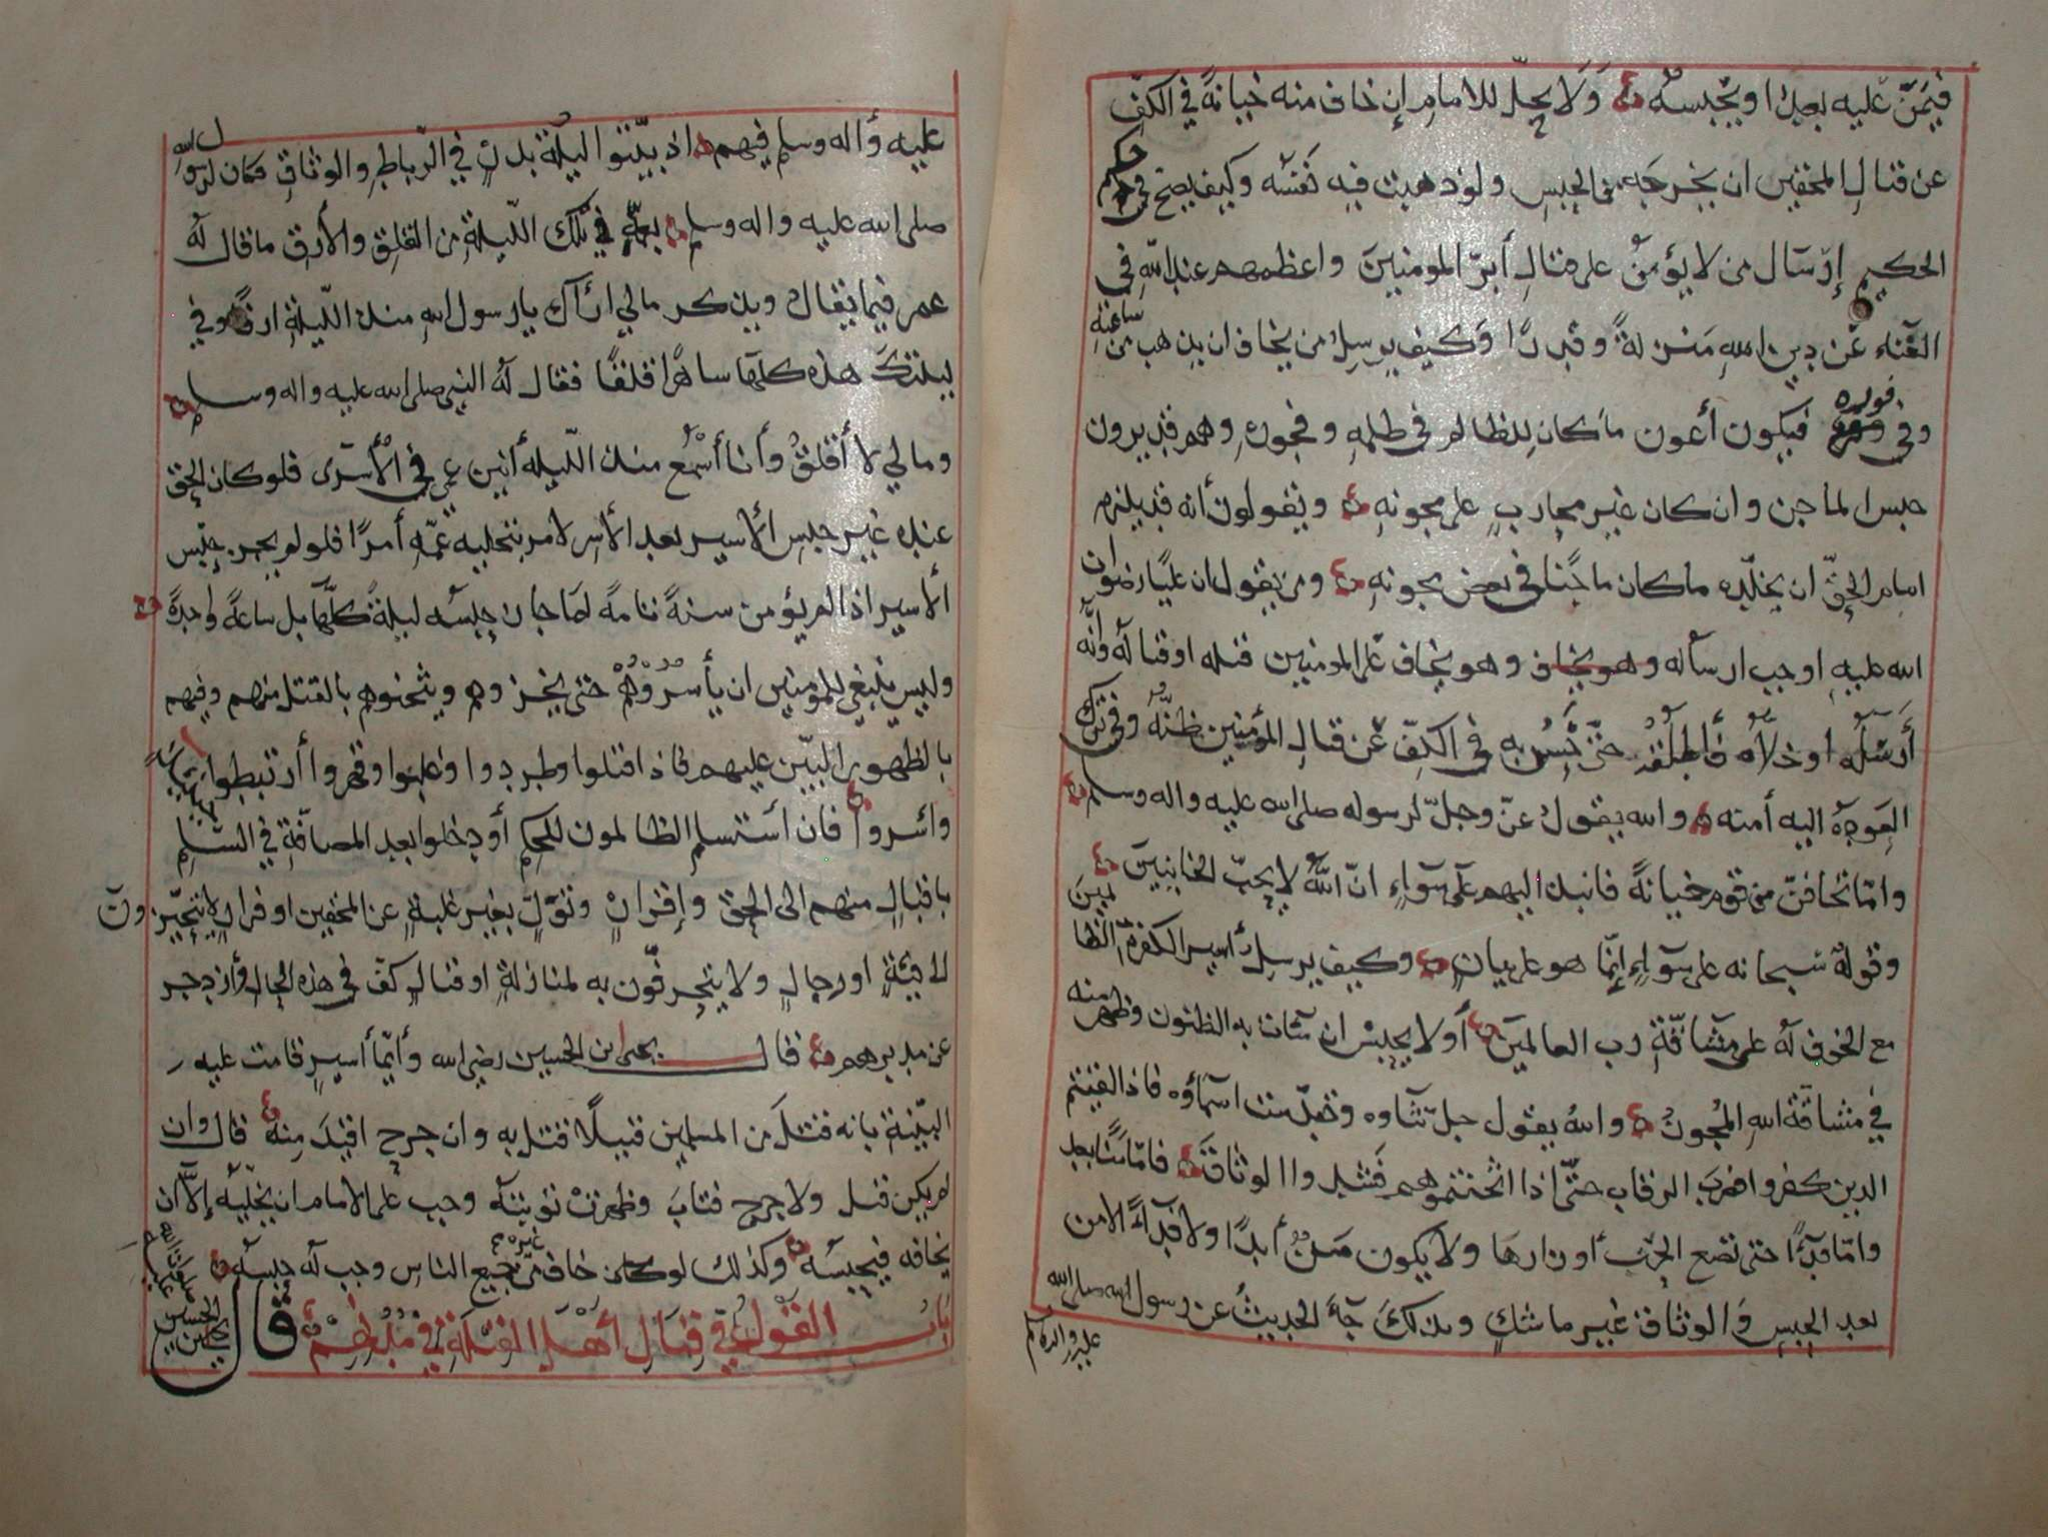 فيمن عليه بعد او يحبسه ولا يحل للامام إن خاف منه خيانة في الكف
عن قتال المحقين ان يخرجه من الحبس ولو ذهبت فيه نفسه وكيف يصح في حكم
الحكيم إرسال من لا يؤمن على قتال أبر المومنين واعظمهم عند الله في
الغناء عن دين الله منزلة وقدرا وكيف يرسل من يخاف ان يذهب من ساعته
وفي فوره فيكون أعون ماكان للظالم في ظلمه وفجوره وهم قد يرون
حبس الماجن وان كان غير محارب على مجونه ويقولون أنه قد يلزم
امام الحق ان يخلده ماكان ماجنا في بعض مجونه ومن يقول ان عليا رضوان
الله عليه اوجب ارساله وهو يخاف وهو يخاف على المومنين قتله او قتاله وأنه
أرسله او خلاه فأطلقه حتى به في الكف عن قتال المؤمنين ظنه وفي ترك
العودة اليه أمنه والله يقول عز وجل لرسوله صلى الله عليه واله وسلم
واما تخافن من قوم خيانة فانبذ اليهم على سوآء ان الله لا يحب الخائنين
وقوله سبحانه على سوآء إنما هو على بيان وكيف يرسل أسير الكفرة الظالمين
مع الخوف له على مشآقة رب العالمين أو لا يحبس ان سآءت به الظنون وظهر منه
في مشاقة الله المجون والله يقول جل ثناوه وتقدست اسمآؤه فاذا لقيتم
الذين كفروا فضرب الرقاب حتى اذا اثخنتموهم فشدوا الوثاق فامّا منّا بعد
وامّا فدآء حتى تضع الحرب أوزارها ولا يكون من أبدا ولا فدآء الا من
بعد الحبس والوثاق غير ما شك وبذلك جآء الحديث عن رسول الله صلى الله
عليه واله وسلم
عليه وأله وسلم فيهم اذ بيتوا ليلة بدر في الرباط والوثاق فكان لرسول الله
صلى الله عليه واله وسلم بعمه في تلك الليلة من القلق والأرق ما قال له
عمر فيما يقال ويذكر مالي اراك يا رسول الله منذ الليلة ارقا وفي
ليلتك هذه كلها ساهرا قلقا فقال له النبي صلى الله عليه واله وسلم
ومالي لا أقلق وأنا أسمع منذ الليلة أنين عمي في الأسرى فلو كان الحق
عنده غير حبس الأسير بعد الأسر لامر بتخليه عمه أمرا فلو لم يجز حبس
ألاسير اذا لم يؤمن سنة تامة لما جاز حبسه ليلة كلها بل ساعة واحدة
وليس ينبغي للمومنين ان يأسروهم حتى يخزوهم ويثخنوهم بالقتل منهم وفيهم
بالظهور البين عليهم فاذا قتلوا وطردوا وغلبوا وقهروا أرتبطوا
وأسروا فان استسلم الظالمون للحكم أو دخلوا بعد المصآفة في السلم
باقبال منهم الى الحق وإقرار وتول بغير غلبة عن المحقين او فرار لا يتحيزون
الى فئة او رجال ولا يتحرفون به لمنازلة او قتال كف في هذه الحال
عن مدبرهم قال يحيى ابن الحسين رضي الله وأيما أسير قامت عليه
البينة بانه قتل من المسلمين قتيلا قتل به وان جرح اقيد منه قال وان
لم يكن قتل ولا جرح فتاب وظهرت توبته وجب على الامام ان يخليه إلا ان
يخافه فيحبسه وكذلك لو كان خاف من غيره من جميع الناس وجب له حبسه
باب القول في قتال أهل القبلة في مدنهم قال
يحيى بن الحسين